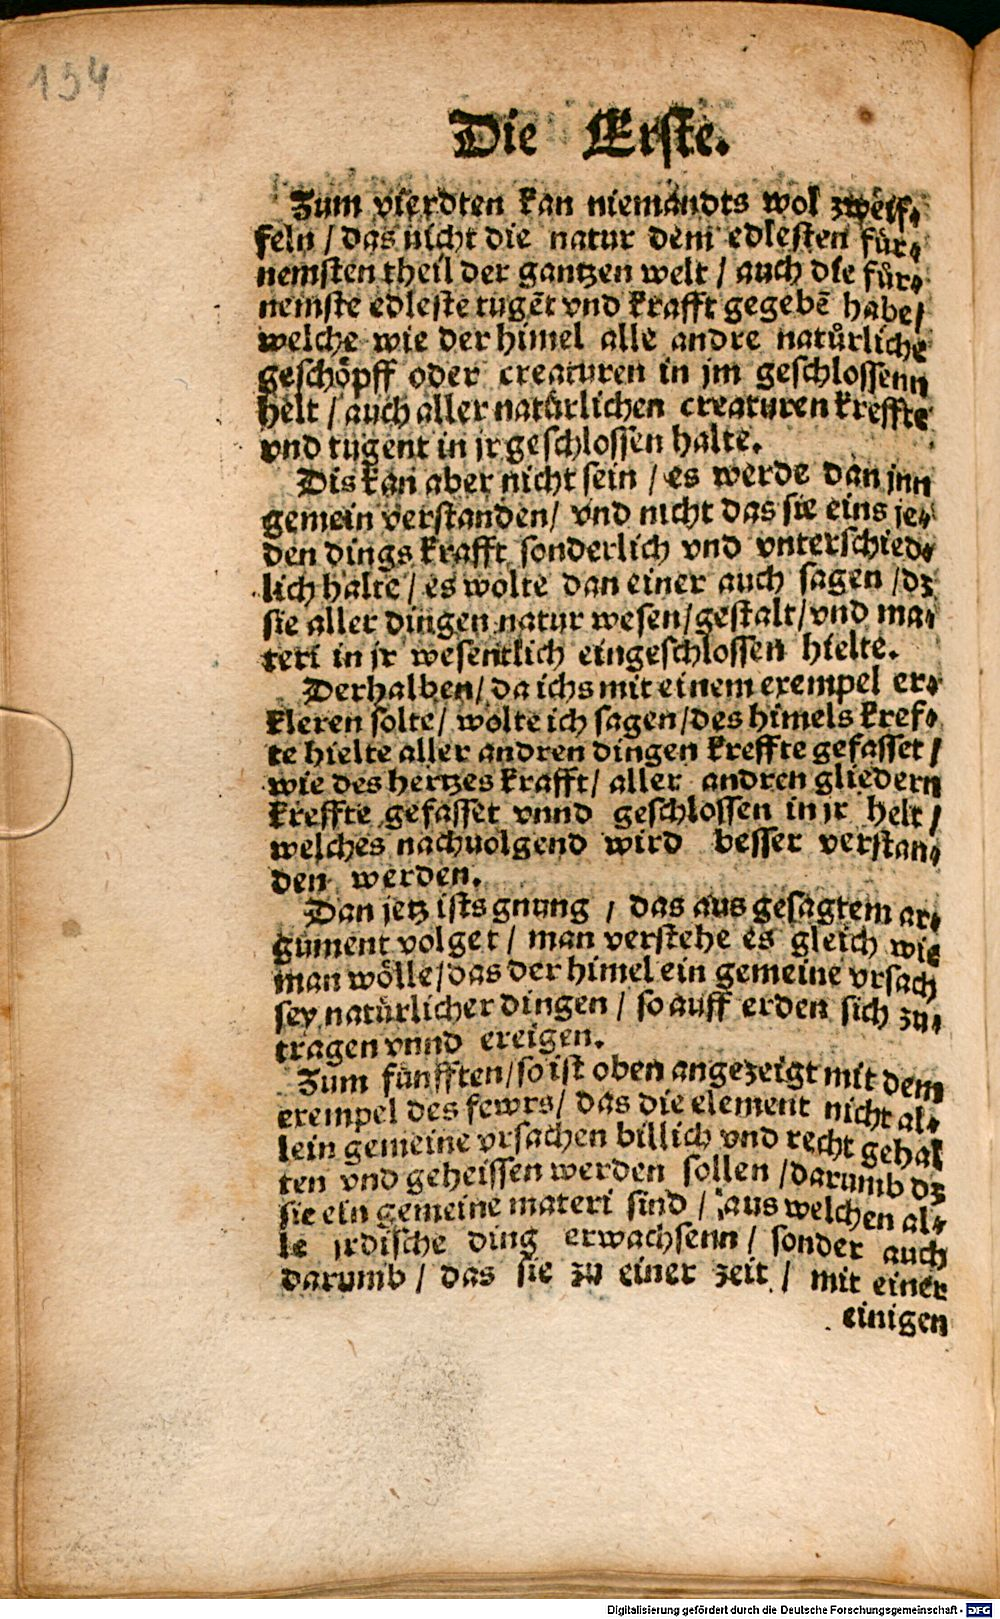 154
Die Erste.
Zum vierdten kan niemandts wol zweif⸗
feln / das nicht die natur dem edlesten fuͤr⸗
nemsten theil der gantzen welt / auch die fuͤr⸗
nemste edleste tugēt vnd krafft gegebē habe /
welche wie der himel alle andre natuͤrliche
geschoͤpff oder creaturen in jm geschlossenn
helt / auch aller natuͤrlichen creaturen kreffte
vnd tugent in jr geschlossen halte.
Dis kan aber nicht sein / es werde dan jnn
gemein verstanden / vnd nicht das sie eins je⸗
den dings krafft sonderlich vnd vnterschied⸗
lich halte / es wolte dan einer auch sagen / dz
sie aller dingen natur wesen / gestalt / vnd ma⸗
teri in jr wesentlich eingeschlossen hielte.
Derhalben / da ichs mit einem exempel er⸗
kleren solte / wolte ich sagen / des himels kref⸗
te hielte aller andren dingen kreffte gefasset /
wie des hertzes krafft / aller andren gliedern
kreffte gefasset vnnd geschlossen in jr helt /
welches nachuolgend wird besser verstan⸗
den werden.
Dan jetz ists gnung / das aus gesagtem ar⸗
gument volget / man verstehe es gleich wie
man woͤlle / das der himel ein gemeine vrsach
sey natuͤrlicher dingen / so auff erden sich zu⸗
tragen vnnd ereigen.
Zum fuͤnfften / so ist oben angezeigt mit dem
exempel des fewrs / das die element nicht al⸗
lein gemeine vrsachen billich vnd recht gehal
ten vnd geheissen werden sollen / darumb dz
sie ein gemeine materi sind / aus welchen al⸗
le jrdische ding erwachsenn / sonder auch
darumb / das sie zu einer zeit / mit einer
einigen
Digitalisierung gefördert durch die Deutsche Forschungsgemeinschaft - DFG